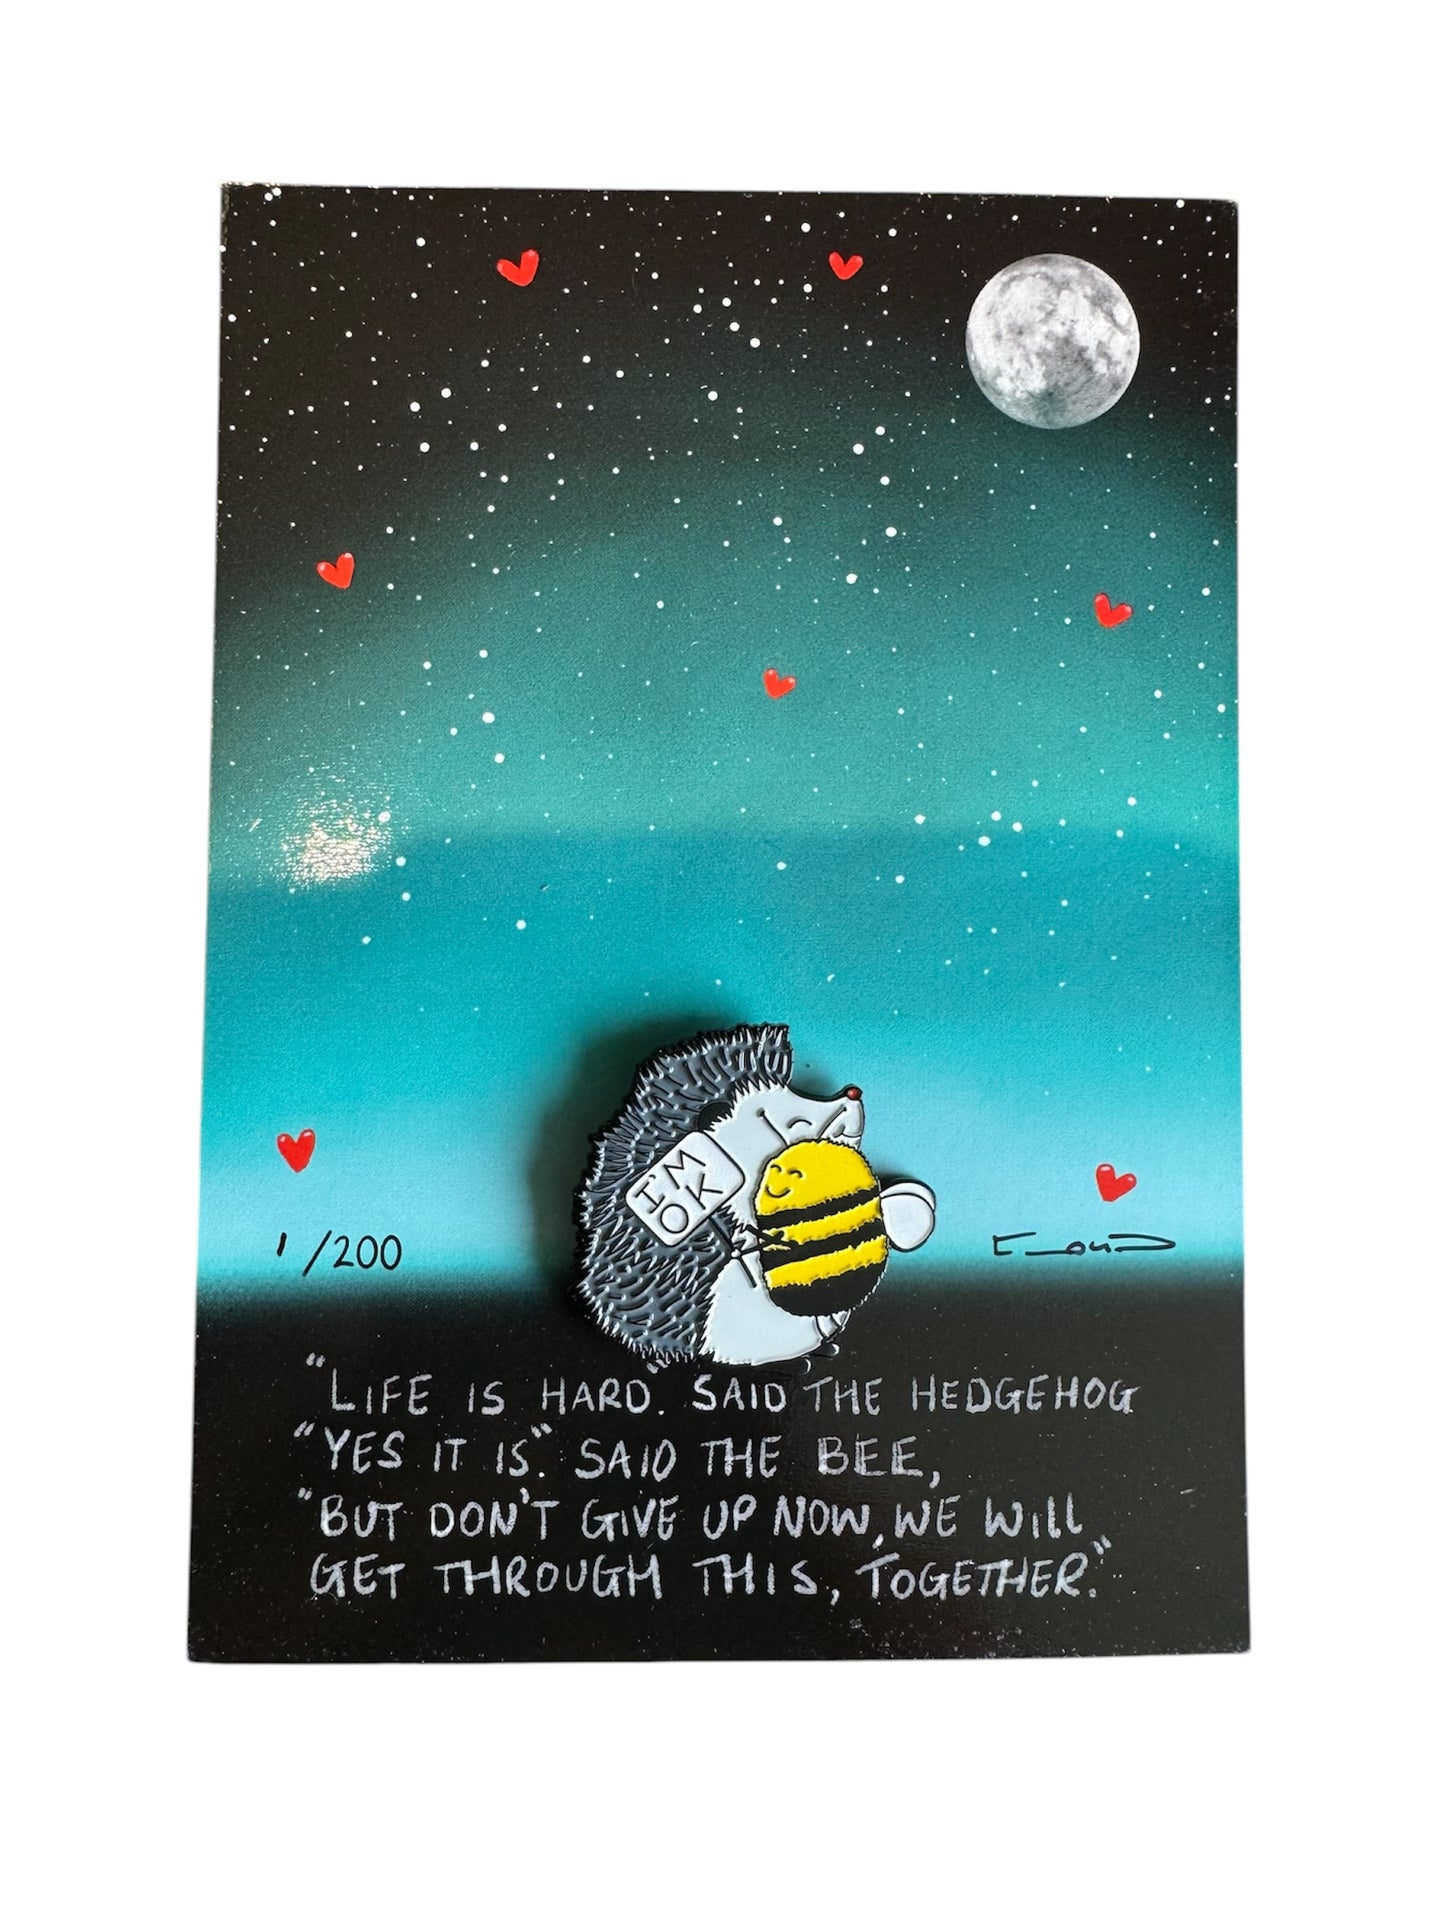 I'M
OK
1/200
"LIFE IS HARD". SAID THE HEDGEHOG
"YES IT IS". SAID THE BEE,
"BUT DON'T GIVE UP NOW, WE WILL
GET THROUGH THIS, TOGETHER."